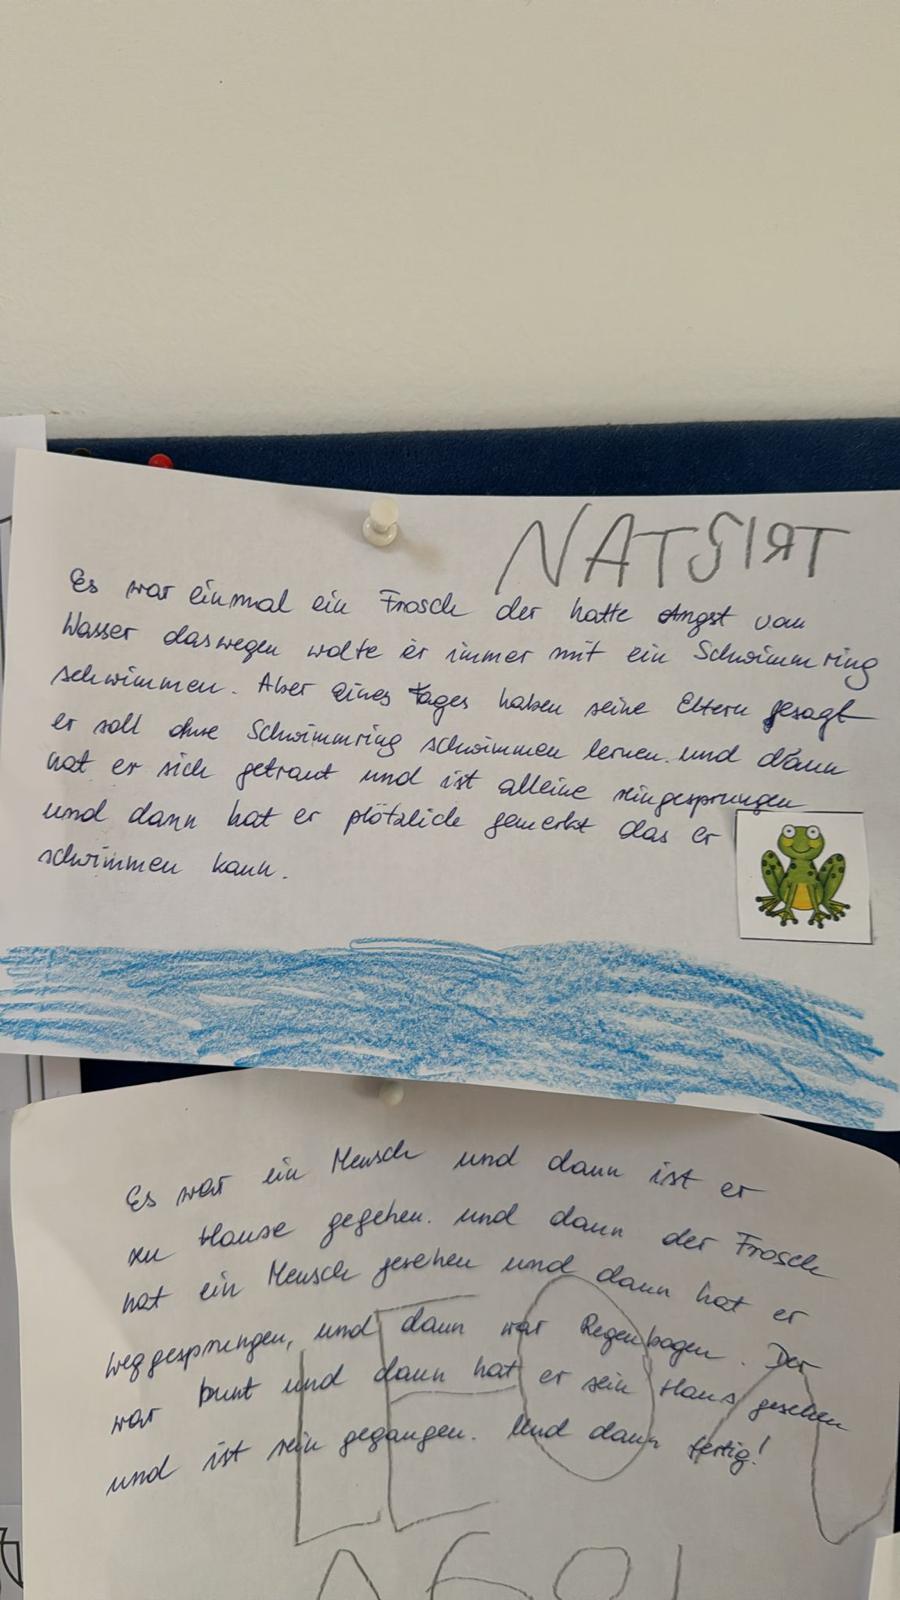 NATSIRT
Es war einmal ein Frosch der hatte Angst vom
Wasser daswegen wolte er immer mit ein Schwimmring
schwimmen. Aber eines tages haben seine Eltern gesagt
er soll ohne Schwimmring schwimmen lernen und dann
hat er sich getraut und ist alleine reingesprungen
und dann hat er plötzlich gemerkt das er
schwimmen kann.
Es war ein Mensch und dann ist er
zu Hause gegehen. und dann der Frosch
hat ein Mensch gesehen und dann hat er
weggesprungen, und dann war Regenbogen. Der
war bunt und dann hat er sein Haus gesehen
und ist rein gegangen. Und dann fertig!
LEON